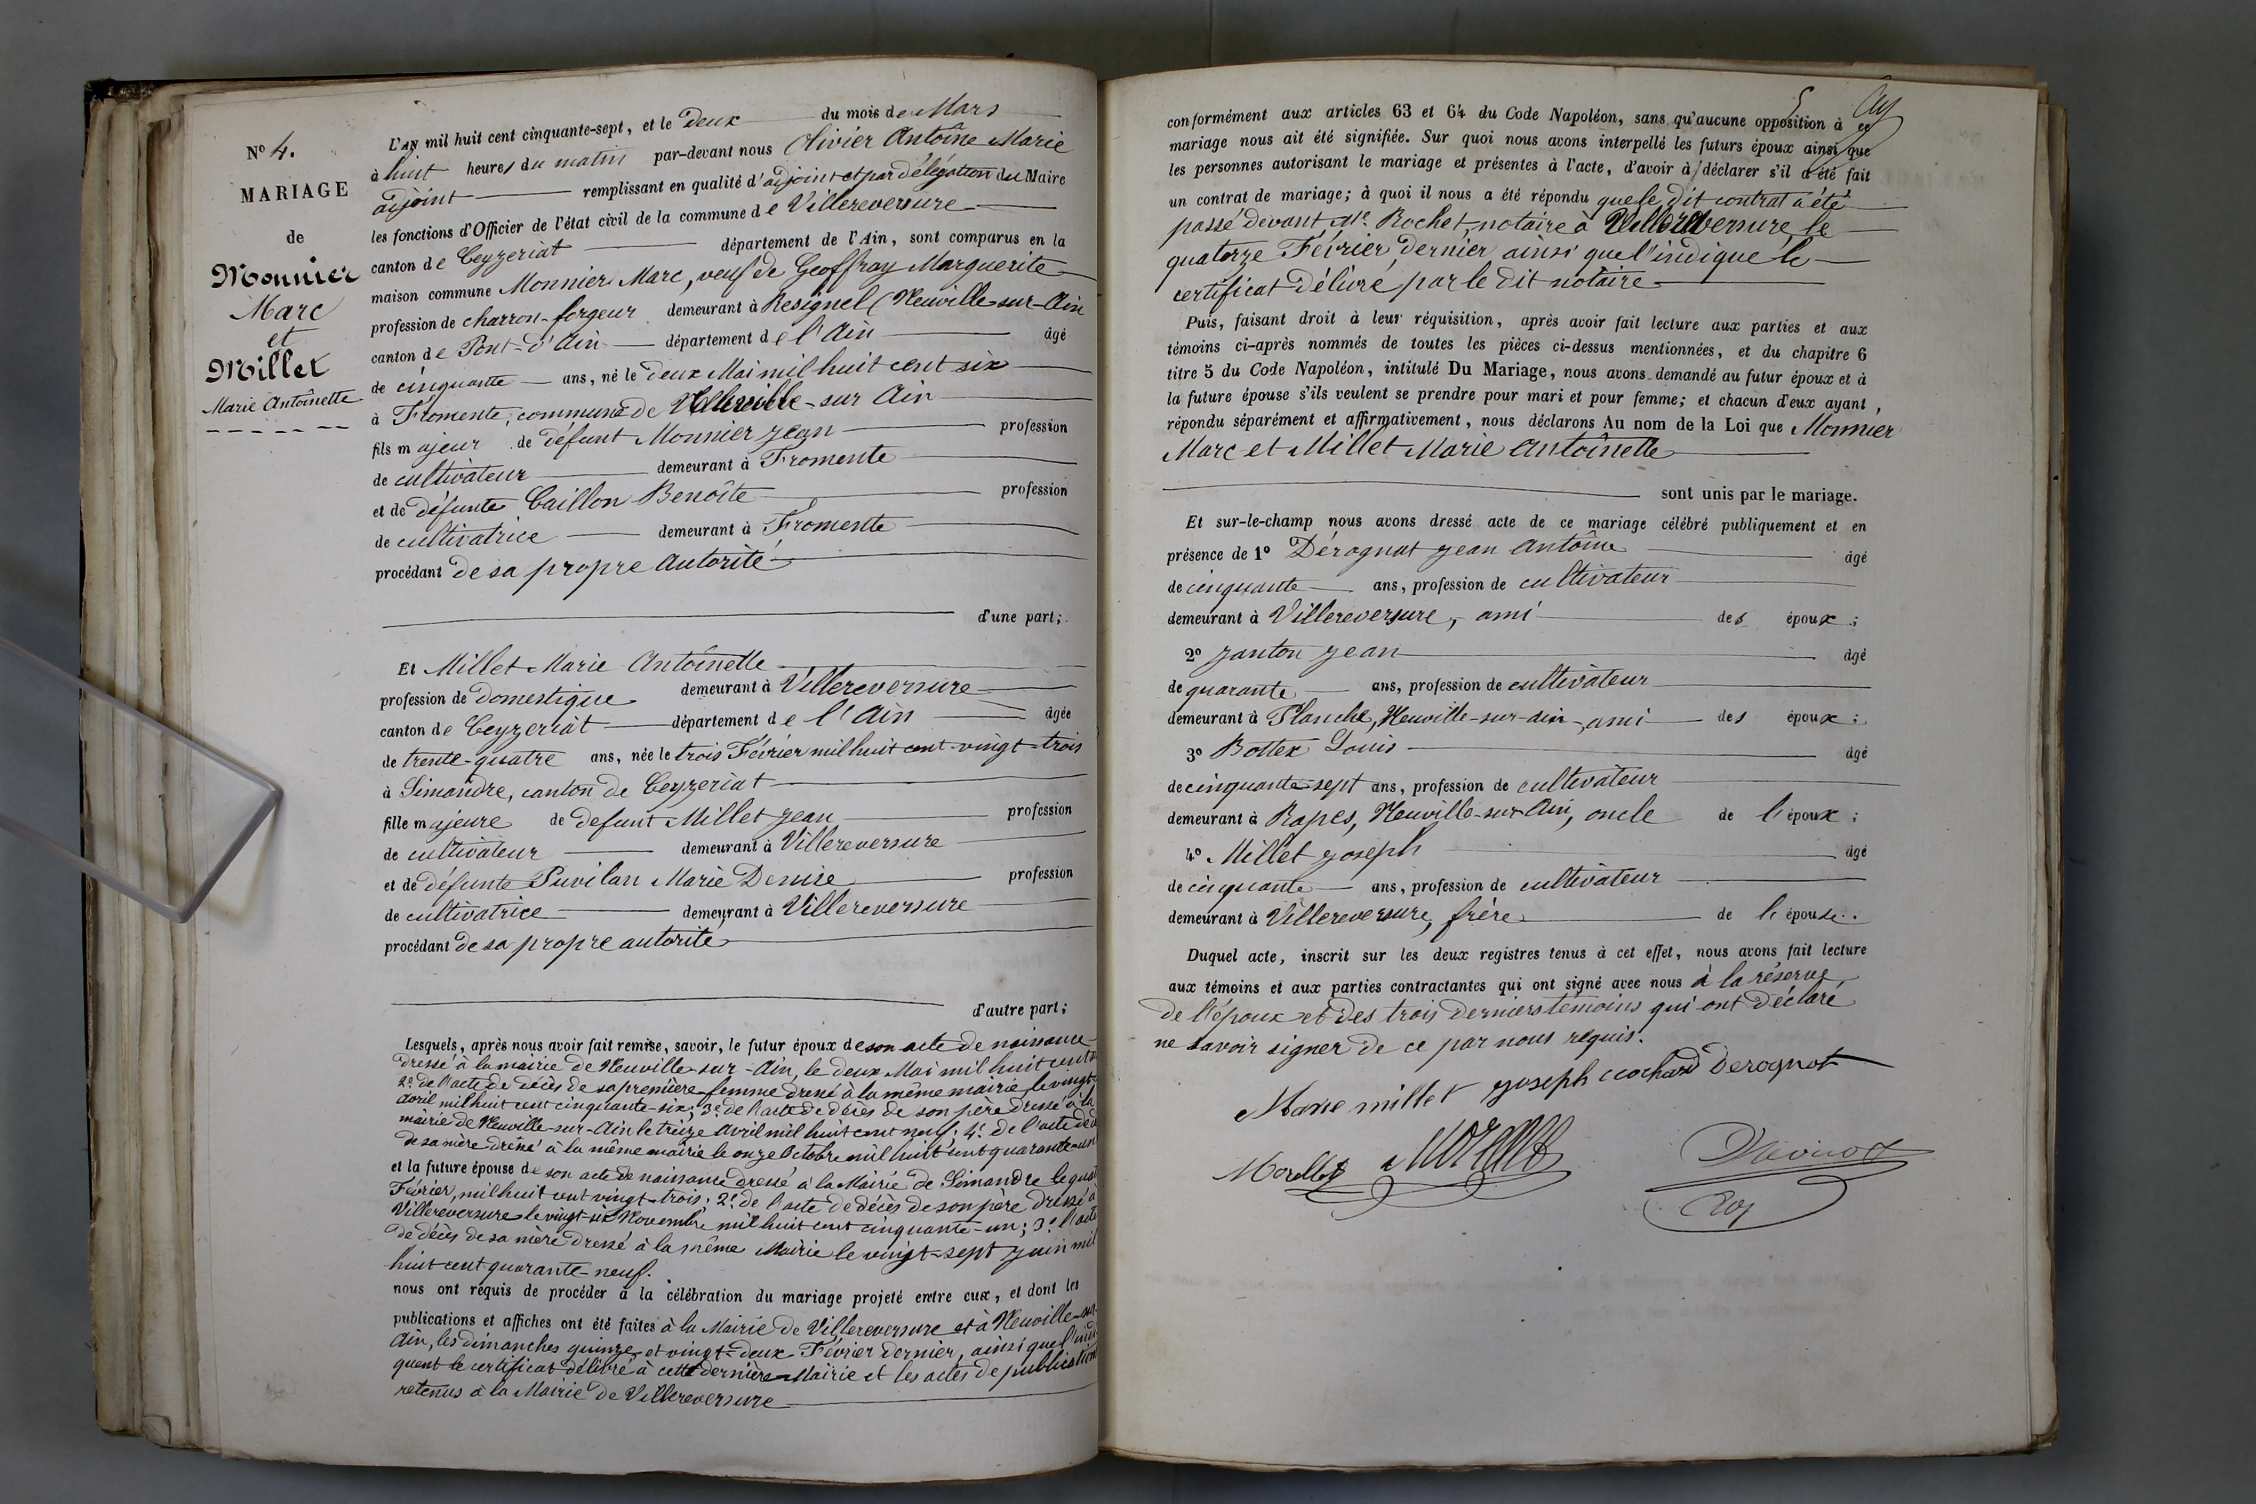 N° 4.
MARIAGE
de
Monnier
Marc
et
Millet
Marie Antoinette
L'an mil huit cent cinquante-sept, et le Deux du mois de Mars
à huit heures du matin par-devant nous Olivier Antoine Marie
adjoint remplissant en qualité d'adjoint et par délégation du Maire
les fonctions d'Officier de l'état civil de la commune de Villereversure
canton de Ceyzeriat département de l'Ain, sont comparus en la
maison commune Monnier Marc, veuf de Geoffray Marguerite
profession de charron-forgeur demeurant à Resignel (Neuville-sur-Ain
canton de Pont-d'Ain département de l'Ain âgé
de cinquante ans, né le deux Mai mil huit cent six
à Fromente, commune de Neuville-sur Ain
fils majeur de défunt Monnier Jean profession
de cultivateur demeurant à Fromente
et de défunte Caillon Benoîte profession
de cultivatrice demeurant à Fromente
procédant de sa propre autorité
d'une part;
Et Millet Marie Antoinette
profession de Domestique demeurant à Villereversure
canton de Ceyzeriat département de l'Ain âgée
de trente-quatre ans, née le trois Février mil huit cent vingt-trois
à Simandre, canton de Ceyzeriat
fille majeure de défunt Millet Jean profession
de cultivateur demeurant à Villereversure
et de défunte Puvilan Marie Denise profession
de cultivatrice demeurant à Villereversure
procédant de sa propre autorité
d'autre part;
Lesquels, après nous avoir fait remise, savoir, le futur époux de son acte de naissance
dressé à la mairie de Neuville-sur-Ain, le deux Mai mil huit cent
2° de l'acte de décès de sa première femme dressé à la même mairie le vingt
avril mil huit cent cinquante-six; 3° de l'acte de décès de son père dressé à la
mairie de Neuville-sur-Ain le treize Avril mil huit cent neuf; 4° de l'acte de
de sa mère dressé à la même mairie le onze Octobre mil huit cent quarante-un
et la future épouse de son acte de naissance dressé à la Mairie de Simandre le
Février, mil huit cent vingt-trois; 2° de l'acte de décès de son père dressé à
Villereversure le vingt-six Novembre mil huit cent cinquante-un; 3° l'acte
de décès de sa mère dressé à la même Mairie le vingt-sept Juin mil
huit cent quarante-neuf.
nous ont requis de procéder à la célébration du mariage projeté entre eux, et dont les
publications et affiches ont été faites à la Mairie de Villereversure et à Neuville-sur-
Ain, les dimanches quinze et vingt-deux Février dernier, ainsi que l'indi
quent le certificat délivré à cette dernière Mairie et les actes de publication
retenus à la Mairie de Villereversure
conformément aux articles 63 et 64 du Code Napoléon, sans qu'aucune opposition à ce
mariage nous ait été signifiée. Sur quoi nous avons interpellé les futurs époux ainsi que
les personnes autorisant le mariage et présentes à l'acte, d'avoir à déclarer s'il a été fait
un contrat de mariage; à quoi il nous a été répondu que le dit contrat a été
passé devant Me. Rochet, notaire à Villereversure le
quatorze Février dernier ainsi que l'indique le
certificat délivré par le dit notaire
Puis, faisant droit à leur réquisition, après avoir fait lecture aux parties et aux
témoins ci-après nommés de toutes les pièces ci-dessus mentionnées, et du chapitre 6
titre 5 du Code Napoléon, intitulé Du Mariage, nous avons demandé au futur époux et à
la future épouse s'ils veulent se prendre pour mari et pour femme; et chacun d'eux ayant
répondu séparément et affirmativement, nous déclarons Au nom de la Loi que Monnier
Marc et Millet Marie Antoinette
sont unis par le mariage.
Et sur-le-champ nous avons dressé acte de ce mariage célébré publiquement et en
présence de 1° Dérognat Jean Antoine âgé
de cinquante ans, profession de cultivateur
demeurant à Villereversure, ami des époux;
2° Janton Jean âgé
de quarante ans, profession de cultivateur
demeurant à Planche, Neuville-sur-Ain, ami des époux;
3° Bottex Louis âgé
de cinquante-sept ans, profession de cultivateur
demeurant à Rapes, Neuville-sur-Ain, oncle de l'époux;
4° Millet Joseph âgé
de cinquante ans, profession de cultivateur
demeurant à Villereversure, frère de l'épouse.
Duquel acte, inscrit sur les deux registres tenus à cet effet, nous avons fait lecture
aux témoins et aux parties contractantes qui ont signé avec nous à la réserve
de l'époux et des trois derniers témoins qui ont déclaré
ne savoir signer de ce par nous requis.
Marie millet Joseph cochard Derognat
Morellet